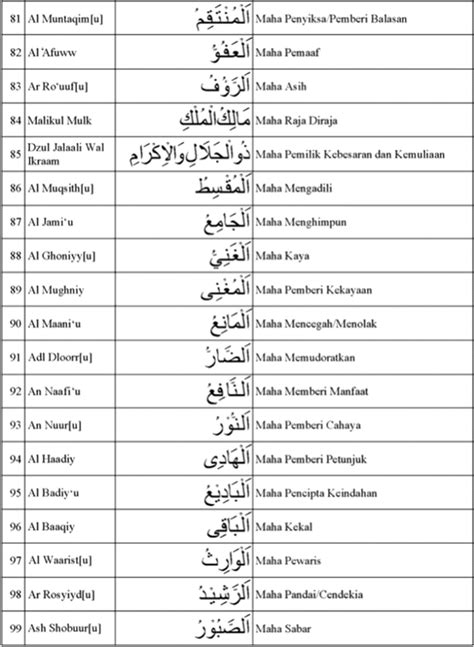 81 Al Muntaqim[u] اَلْمُنْتَقِمُ Maha Penyiksa/Pemberi Balasan
82 Al 'Afuww اَلْعَفُوُّ Maha Pemaaf
83 Ar Ro'uuf[u] اَلرَّؤُفُ Maha Asih
84 Malikul Mulk مَالِكُ الْمُلْكِ Maha Raja Diraja
85 Dzul Jalaali Wal Ikraam ذُوالْجَلَالِ وَالْاِكْرَامِ Maha Pemilik Kebesaran dan Kemuliaan
86 Al Muqsith[u] اَلْمُقْسِطُ Maha Mengadili
87 Al Jami‘u اَلْجَامِعُ Maha Menghimpun
88 Al Ghoniyy[u] اَلْغَنِيُّ Maha Kaya
89 Al Mughniy اَلْمُغْنِى Maha Pemberi Kekayaan
90 Al Maani‘u اَلْمَانِعُ Maha Mencegah/Menolak
91 Adl Dloorr[u] اَلضَّارُّ Maha Memudoratkan
92 An Naafi‘u اَلنَّافِعُ Maha Memberi Manfaat
93 An Nuur[u] اَلنُّوْرُ Maha Pemberi Cahaya
94 Al Haadiy اَلْهَادِى Maha Pemberi Petunjuk
95 Al Badiy‘u اَلْبَادِيْعُ Maha Pencipta Keindahan
96 Al Baaqiy اَلْبَاقِى Maha Kekal
97 Al Waarist[u] اَلْوَارِثُ Maha Pewaris
98 Ar Rosyiyd[u] اَلرَّشِيْدُ Maha Pandai/Cendekia
99 Ash Shobuur[u] اَلصَّبُوْرُ Maha Sabar